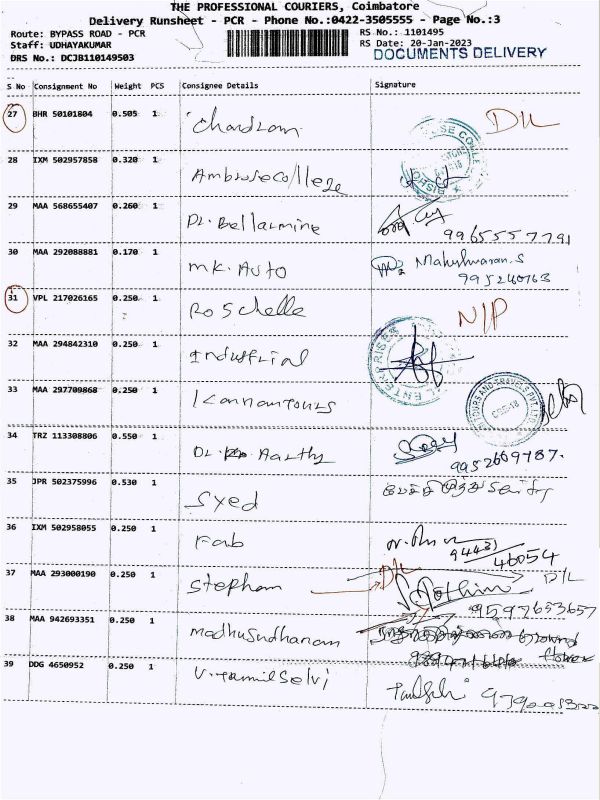 THE PROFESSIONAL COURIERS, Coimbatore
Delivery Runsheet - PCR - Phone No.:0422-3505555 - Page No.:3
Route: BYPASS ROAD - PCR
RS No.: 1101495
Staff: UDHAYAKUMAR
RS Date: 20-Jan-2023
DRS No.: DCJB110149503
DOCUMENTS DELIVERY
S No Consignment No Weight PCS Consignee Details Signature
27 BHR 50101804 0.505 1 Chandram D/L
28 IXM 502957858 0.320 1 Ambrose college
29 MAA 568655407 0.260 1 Dr. Bellarmine 9965557791
30 MAA 292088881 0.170 1 MK. Auto Maheshwaran.S
995240763
31 VPL 217026165 0.250 1 Roschelle N/P
32 MAA 294842310 0.250 1 Industrial
33 MAA 297709868 0.250 1 Kannan Tours
34 TRZ 113308806 0.550 1 Dr. Aarthy
9952669787.
35 JPR 502375996 0.530 1 Syed
36 IXM 502958055 0.250 1 Fab
94431 46054
37 MAA 293000190 0.250 1 Stephan D/L D/L
9597653657
38 MAA 942693351 0.250 1 Madhusudhanan
39 DDG 4650952 0.250 1 V. Tamilselvi